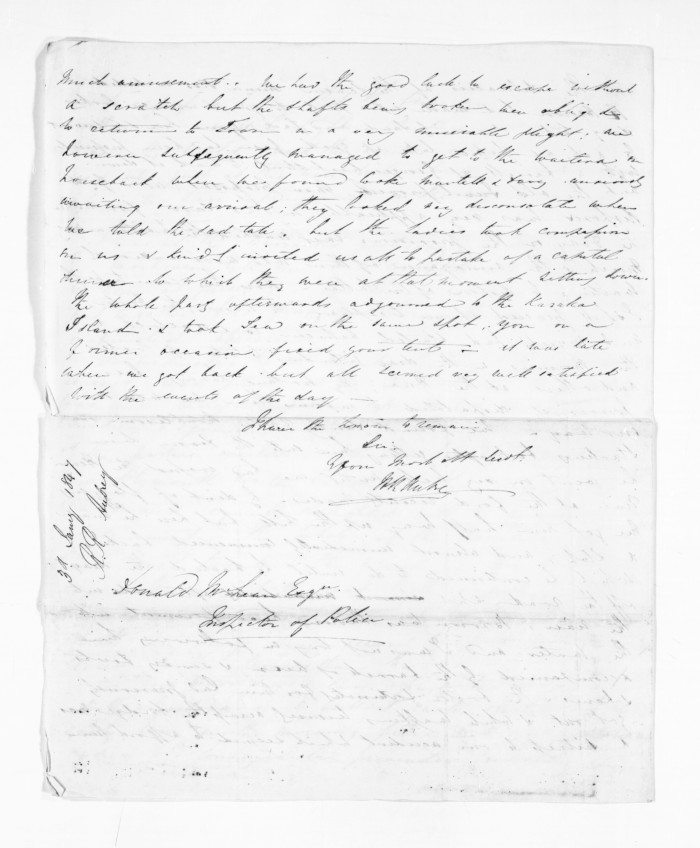 much amusement. We had the good luck to escape without
a scratch but the shafts being broken were obliged
to return to Town in a very miserable plight. we
however subsequently managed to get to the Waitera on
horseback when we found Cooke & anxiously
awaiting our arrival; they looked very disconsolate when
we told the sad tale. but the ladies took compassion
on us & kindly invited us all to partake of a capital
dinner to which they were at that moment sitting down.
The whole party afterwards adjourned to the Karaka
Island & took Tea on the same spot, you on a
former occasion fixed your tent – it was late
when we got back but all seemed very well satisfied
with the events of the day —
I have the honor to remain
Sir
Your Most obt Servt.
3d Jany 1847
R. R. Aubrey
Donald McLean Esqr.
Inspector of Police